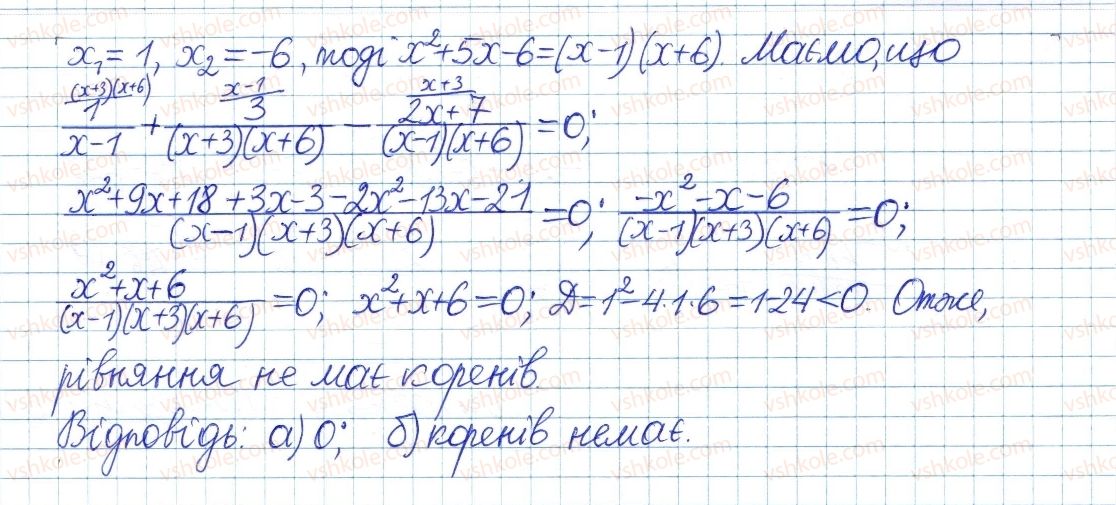 x₁ = 1, x₂ = -6, тоді x² + 5x - 6 = (x - 1)(x + 6). Маємо, що
(x+3)(x+6) x-1 x+3
1/(x - 1) + 3/((x + 3)(x + 6)) - (2x + 7)/((x - 1)(x + 6)) = 0;
(x² + 9x + 18 + 3x - 3 - 2x² - 13x - 21)/((x - 1)(x + 3)(x + 6)) = 0; (-x² - x - 6)/((x - 1)(x + 3)(x + 6)) = 0;
(x² + x + 6)/((x - 1)(x + 3)(x + 6)) = 0; x² + x + 6 = 0; Д = 1² - 4·1·6 = 1 - 24 < 0. Отже,
рівняння не має коренів.
Відповідь: а) 0; б) коренів немає.
vshkole.com